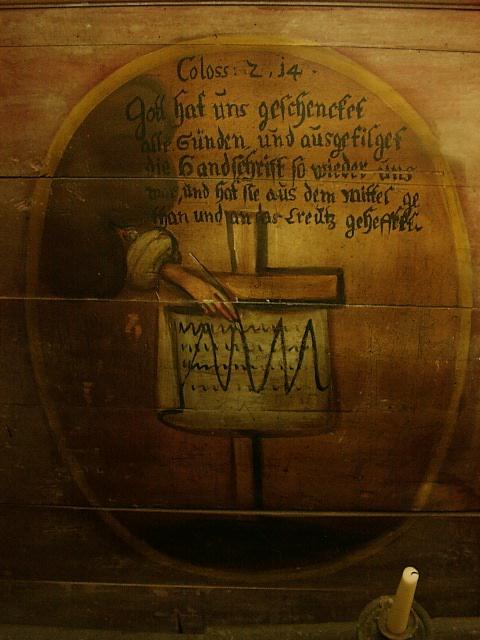 Coloss: 2, 14.
Gott hat uns geschencket
alle Sünden, und ausgetilget
die Handschrifft so wieder uns
war, und hat sie aus dem mittel ge
than und an das Creütz gehefftet.